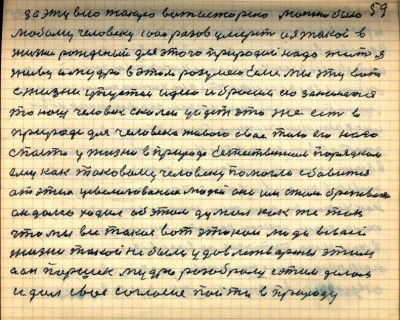 за эту вю такую во та историю можно было 59
любому человеку 1000 раз ов умереть и я такой в
жизни рожденый для этого природой надо жить я
живу и мудро в этом розумею если мы эту вот
с жизни упустем идею и бросим ею заниматся
то наш человек сколем уйдет это же есть в
природе для человека живого свое тело его надо
спасти у жизни в природе бетственым порядком
ему как таковому человеку помогли сбавится
от этих цивилизованых людей они им стали брезвовать
он долго ходил об этом думал как же так
что мы все такие вот этакие люди в своей
жизни такой не были удовлетварены этим
а он Паршек мудро розобрался с этим делом
и дал свое согласие пойти в природу